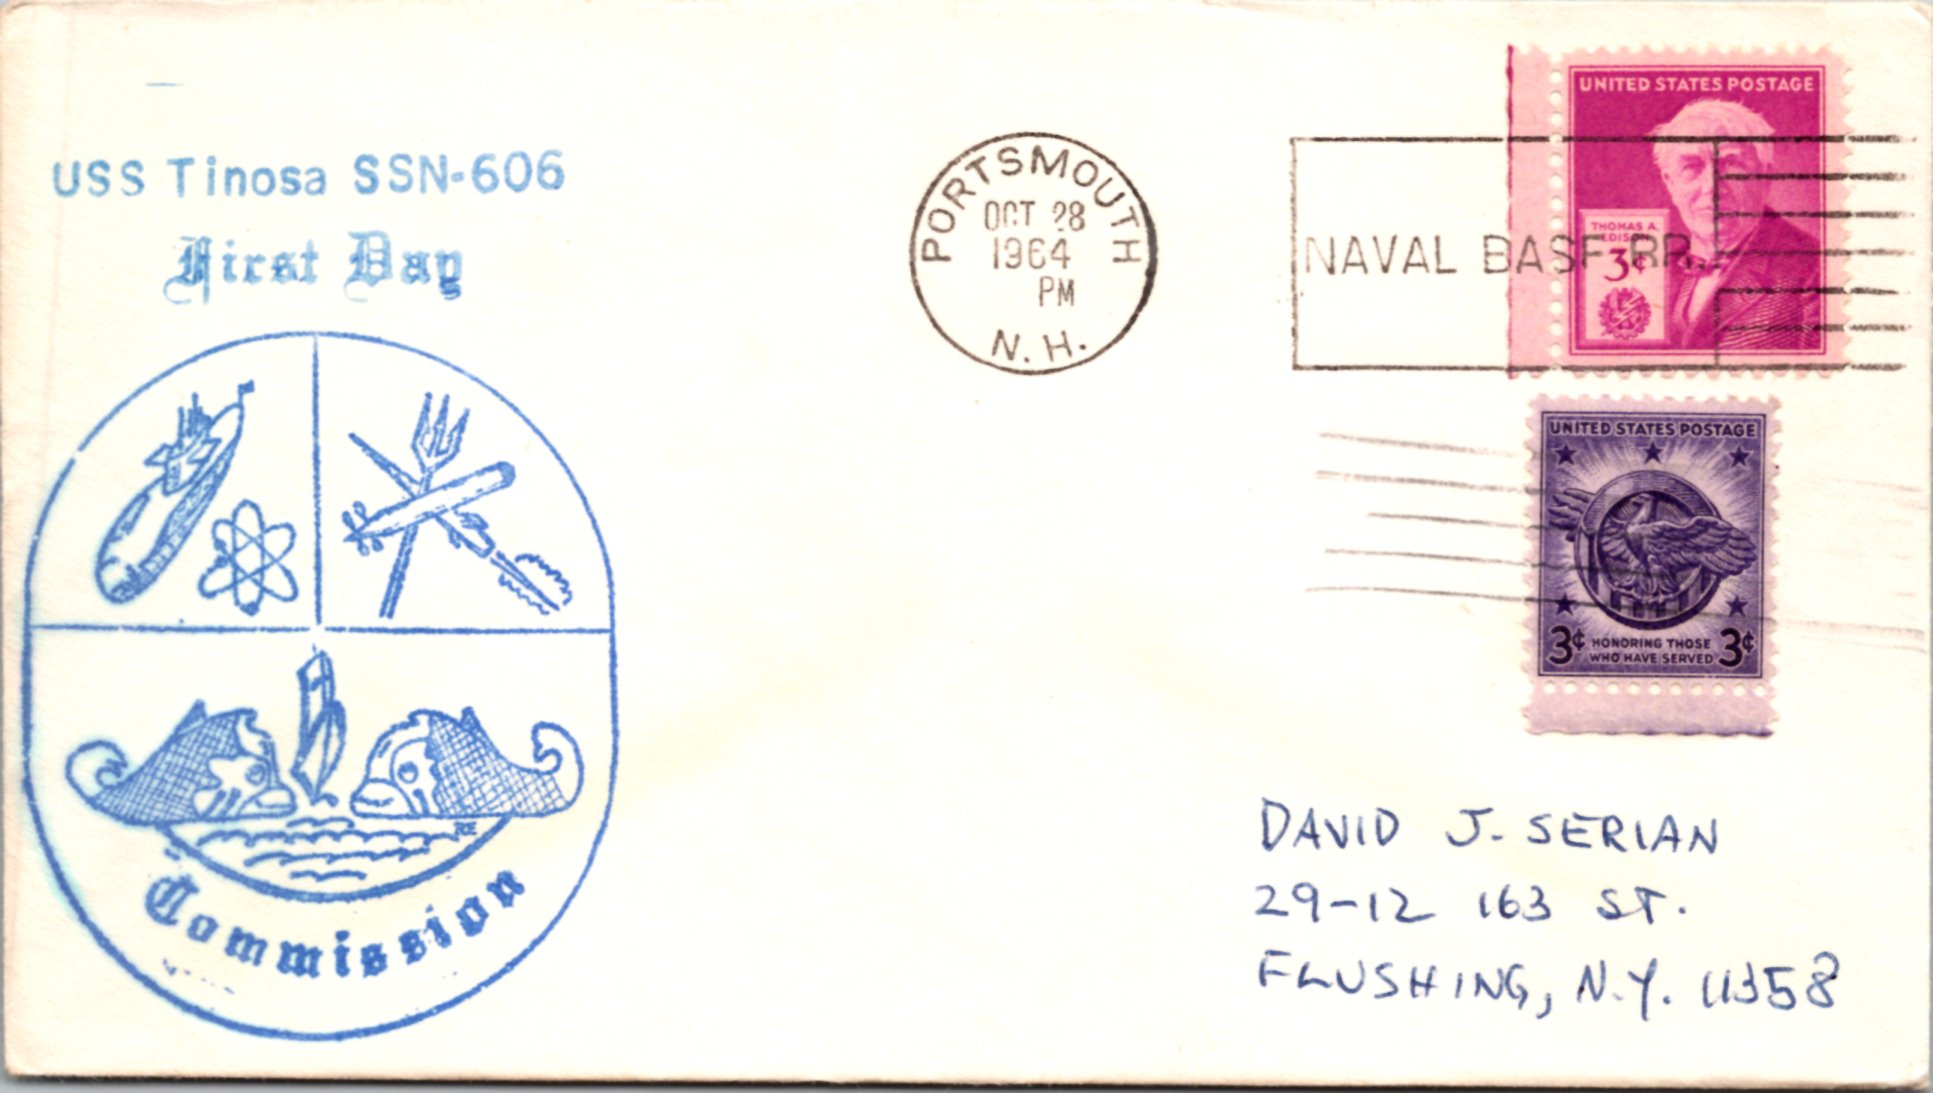 USS Tinosa SSN-606
First Day
Commission
RE
PORTSMOUTH
OCT 28
1964
PM
N.H.
NAVAL BASE BR.
UNITED STATES POSTAGE
THOMAS A.
EDISON
3¢
UNITED STATES POSTAGE
3¢ HONORING THOSE 3¢
WHO HAVE SERVED
DAVID J. SERIAN
29-12 163 ST.
FLUSHING, N.Y. 11358